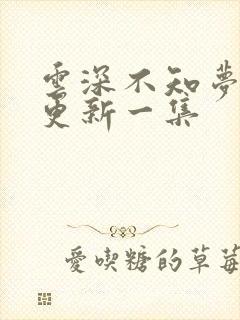 雲深不知夢
更新一集
愛喫糖的草莓